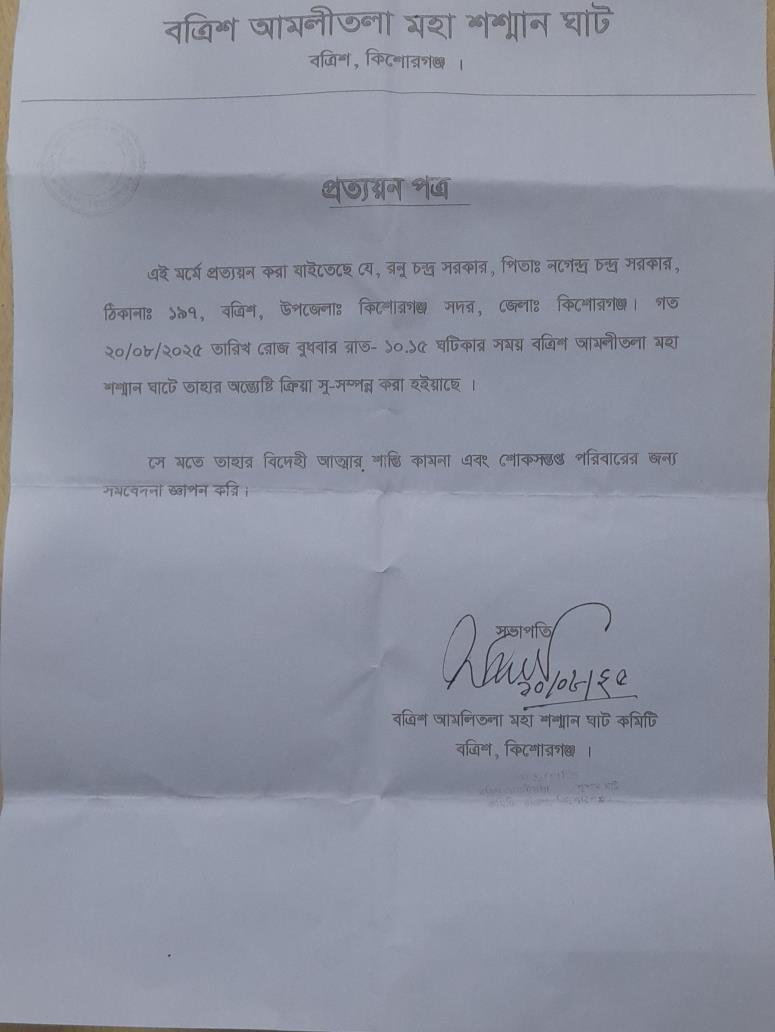 বত্রিশ আমলীতলা মহা শশ্মান ঘাট
বত্রিশ, কিশোরগঞ্জ ।
প্রত্যয়ন পত্র
এই মর্মে প্রত্যয়ন করা যাইতেছে যে, রনু চন্দ্র সরকার, পিতাঃ নগেন্দ্র চন্দ্র সরকার,
ঠিকানাঃ ১৯৭, বত্রিশ, উপজেলাঃ কিশোরগঞ্জ সদর, জেলাঃ কিশোরগঞ্জ। গত
২০/০৮/২০২৫ তারিখ রোজ বুধবার রাত- ১০.১৫ ঘটিকার সময় বত্রিশ আমলীতলা মহা
শশ্মান ঘাটে তাহার অন্ত্যেষ্টি ক্রিয়া সু-সম্পন্ন করা হইয়াছে ।
সে মতে তাহার বিদেহী আত্মার শান্তি কামনা এবং শোকসন্তপ্ত পরিবারের জন্য
সমবেদনা জ্ঞাপন করি।
সভাপতি
২০/০৮/২৫
বত্রিশ আমলিতলা মহা শশ্মান ঘাট কমিটি
বত্রিশ, কিশোরগঞ্জ ।